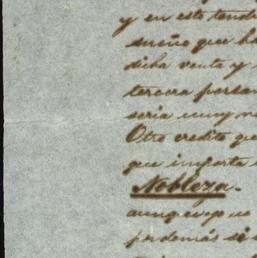 y en esto tendr
sueño que ha
dicha venta y
tercera person
seria muy m
Otro credito qu
que importa
Nobleza.
aunq yo no
perdemás si